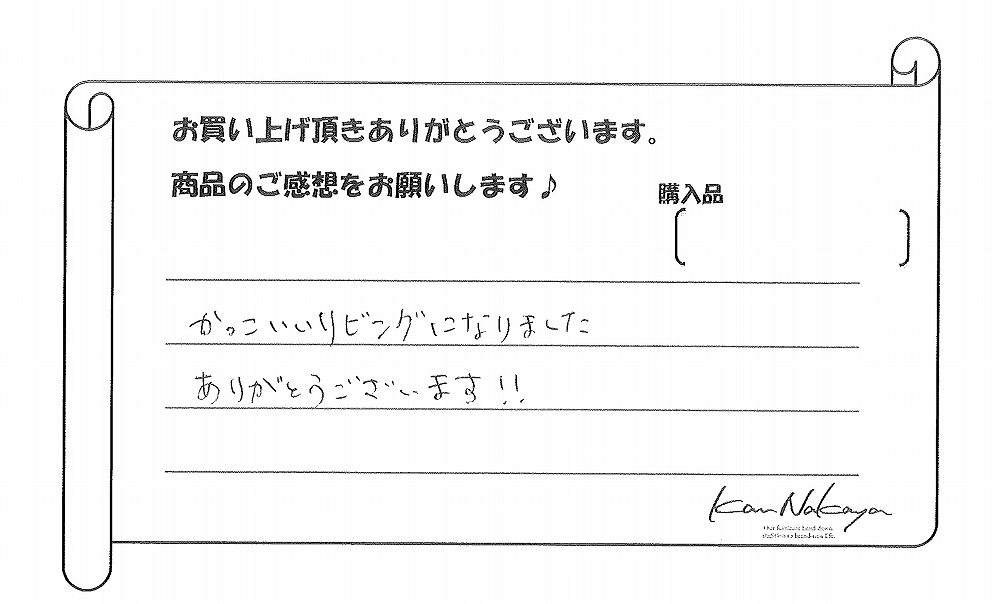 お買い上げ頂きありがとうございます。
商品のご感想をお願いします♪
購入品
かっこいいリビングになりました
ありがとうございます!!
Kan Nakaya
Our furniture hand down
tradition to brand-new life.